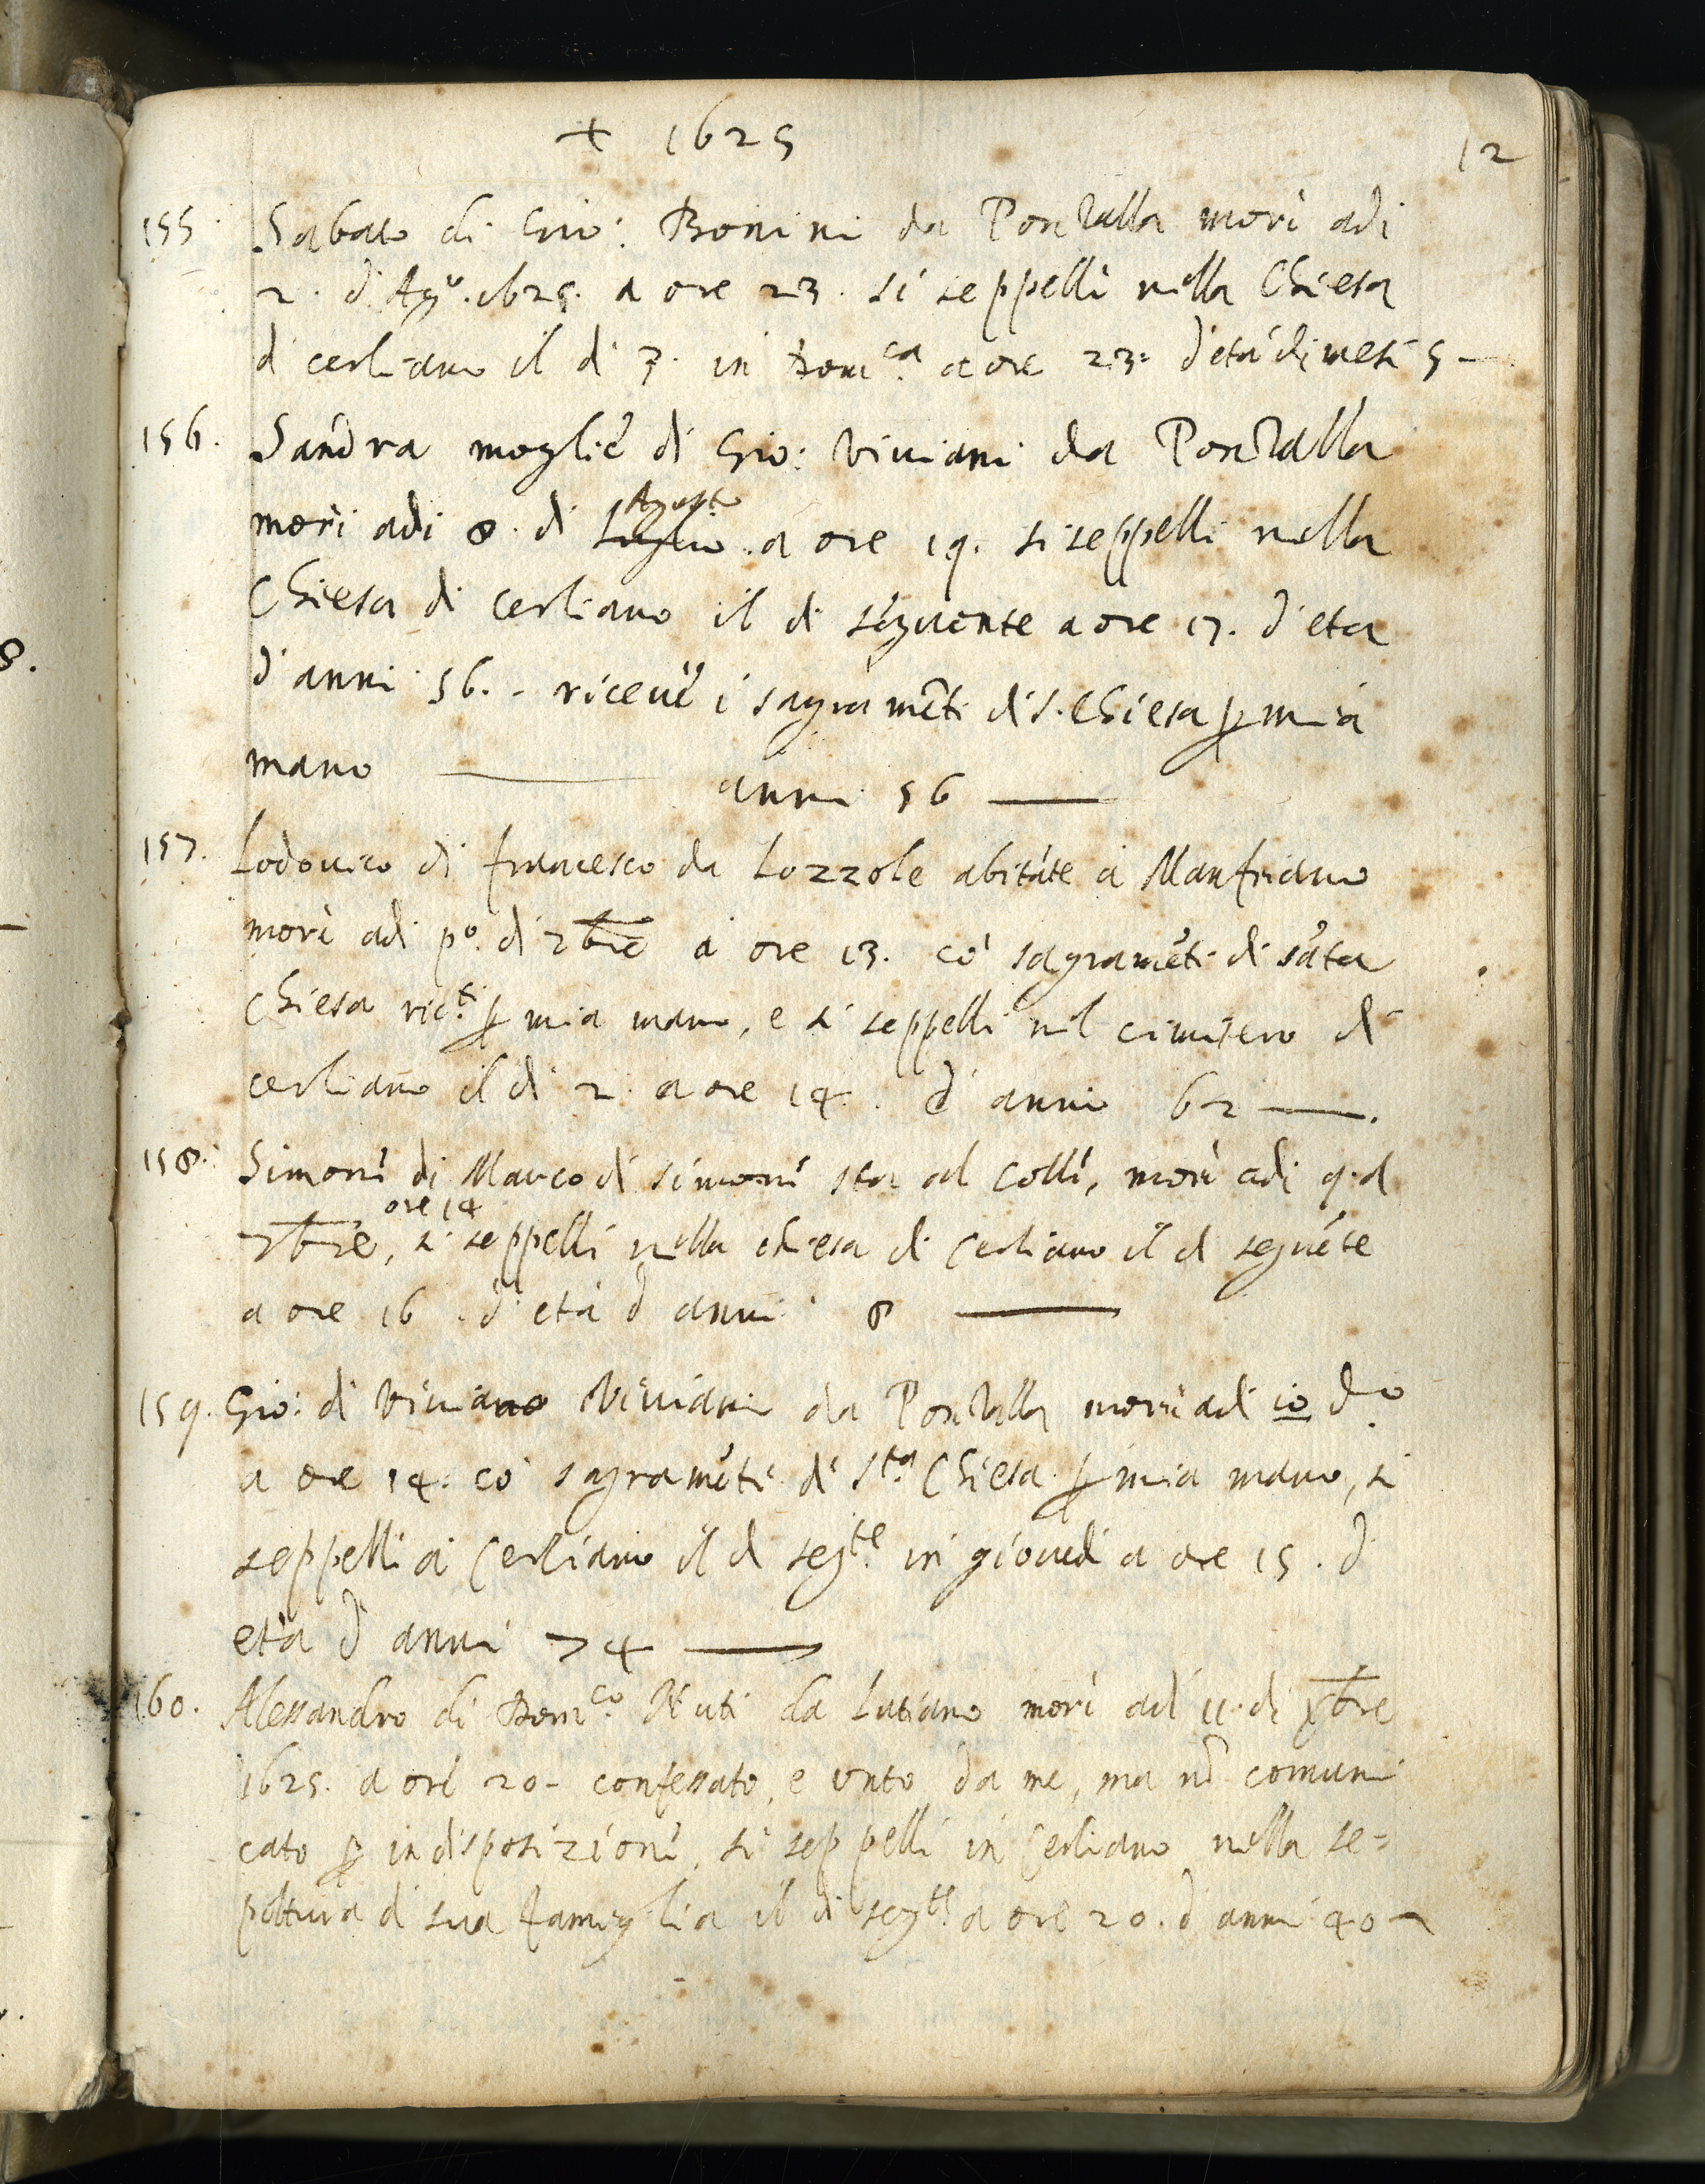 + 1625
12
155 Sabato di Gio: Bonini da Pontalla morì adi
2. d'Ag.o 1625. a ore 23. si seppellì nella Chiesa
d cerliano il dì 3. in Dom.ca a ore 23. d'età di mesi 5 —
156. Sandra moglie di Gio: Viviani da Pontalla
morì adi 8. di Luglio Agosto a ore 19. si seppellì nella
Chiesa di cerliano il dì seguente a ore 17. d'eta
d'anni 56. - ricevè i sagramēti di S. Chiesa ꝑ mia
mano — anni 56 —
157. Lodovico di francesco da Lozzole abitāte à Manfriano
morì adi p.o di 7bre à ore 13. cō sagramēti di sāta
Chiesa ric.ti ꝑ mia mano, e si seppellì nel cimitero di
cerliano il dì 2. a ore 14. d'anni 62 —.
158. Simone di Marco di simone sta al colle, morì adi 9. d
7bre, ore 14 si seppellì nella chiesa di Cerliano il d seguēte
a ore 16. d'età d'anni 8 —
159. Gio: di Viviano Viviani da Pontalla morì adi 10 d.o
a ore 14. cō sagramēti di S.ta Chiesa ꝑ mia mano, si
seppellì à Cerliano il d seg.te in giovedì a ore 15. d'
età d'anni 74 —
160. Alessandro di Dom.co Nuti da Lutiano morì adì 11. di Xbre
1625. a ore 20 - confessato, e unto da me, ma nō comuni
cato ꝑ indisposizione, si seppellì in Cerliano nella se=
poltura d sua famiglia il dì seg.te a ore 20. d'anni 40 —